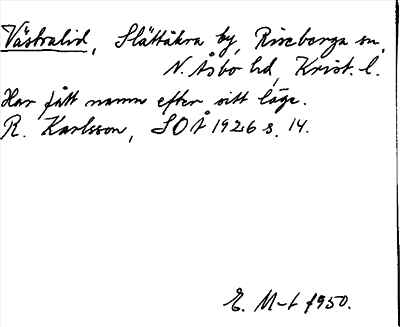 Västralid, Slättåkra by, Riseberga sn,
N. Åsbo hd, Krist. l.
Har fått namn efter sitt läge.
R. Karlsson, SOÅ 1926 s. 14.
E. M-t 1950.